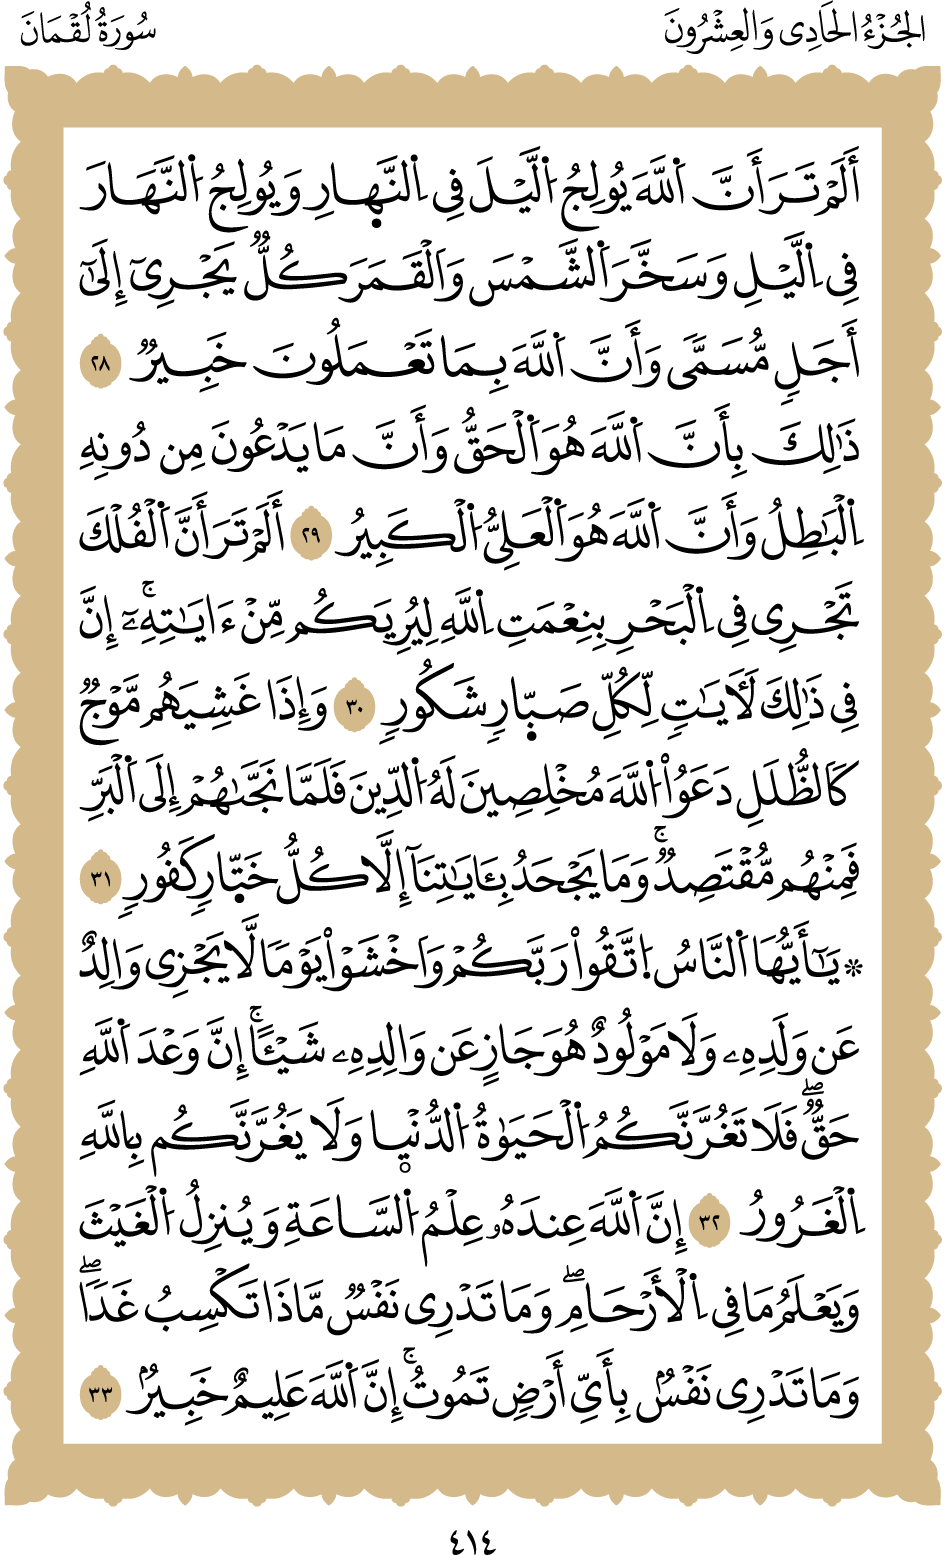 الجُزْءُ الحَادِي وَالعِشْرُونَ
سُورَةُ لُقْمَانَ
أَلَمْ تَرَ أَنَّ اَ۬للَّهَ يُولِجُ اُ۬لَّيْلَ فِي اِ۬لنَّهٜارِ وَيُولِجُ اُ۬لنَّهَارَ
فِي اِ۬لَّيْلِ وَسَخَّرَ اَ۬لشَّمْسَ وَالْقَمَرَ كُلّٞ يَجْرِيٓ إِلَىٰٓ
أَجَلٖ مُّسَمّٗى وَأَنَّ اَ۬للَّهَ بِمَا تَعْمَلُونَ خَبِيرٞ ٢٨
ذَٰلِكَ بِأَنَّ اَ۬للَّهَ هُوَ اَ۬لْحَقُّ وَأَنَّ مَا يَدْعُونَ مِن دُونِهِ
اِ۬لْبَٰطِلُ وَأَنَّ اَ۬للَّهَ هُوَ اَ۬لْعَلِيُّ اُ۬لْكَبِيرُ ٢٩ أَلَمْ تَرَ أَنَّ اَ۬لْفُلْكَ
تَجْرِي فِي اِ۬لْبَحْرِ بِنِعْمَتِ اِ۬للَّهِ لِيُرِيَكُم مِّنْ ءَايَٰتِهِۦٓۚ إِنَّ
فِي ذَٰلِكَ لَأٓيَٰتٖ لِّكُلِّ صَبّٜارٖ شَكُورٖ ٣٠ وَإِذَا غَشِيَهُم مَّوْجٞ
كَالظُّلَلِ دَعَوُاْ اُ۬للَّهَ مُخْلِصِينَ لَهُ اُ۬لدِّينَ فَلَمَّا نَجَّىٰهُمْ إِلَى اَ۬لْبَرِّ
فَمِنْهُم مُّقْتَصِدٞۚ وَمَا يَجْحَدُ بِـَٔايَٰتِنَآ إِلَّا كُلُّ خَبّٜارٖ كَفُورٖ ٣١
۞ يَٰٓأَيُّهَا اَ۬لنَّاسُ اُ۪تَّقُواْ رَبَّكُمْ وَاخْشَوْاْ يَوْمٗا لَّا يَجْزِي وَالِدٌ
عَن وَلَدِهِۦ وَلَا مَوْلُودٌ هُوَ جَازٍ عَن وَالِدِهِۦ شَيْـًٔاۚ إِنَّ وَعْدَ اَ۬للَّهِ
حَقّٞۖ فَلَا تَغُرَّنَّكُمُ اُ۬لْحَيَوٰةُ اُ۬لدُّنْيٜا وَلَا يَغُرَّنَّكُم بِاللَّهِ
اِ۬لْغَرُورُ ٣٢ إِنَّ اَ۬للَّهَ عِندَهُۥ عِلْمُ اُ۬لسَّاعَةِ وَيُنزِلُ اُ۬لْغَيْثَ
وَيَعْلَمُ مَا فِي اِ۬لْأَرْحَامِۖ وَمَا تَدْرِي نَفْسٞ مَّاذَا تَكْسِبُ غَدٗاۖ
وَمَا تَدْرِي نَفْسُۢ بِأَيِّ أَرْضٖ تَمُوتُۚ إِنَّ اَ۬للَّهَ عَلِيمٌ خَبِيرُۢ ٣٣
٤١٤